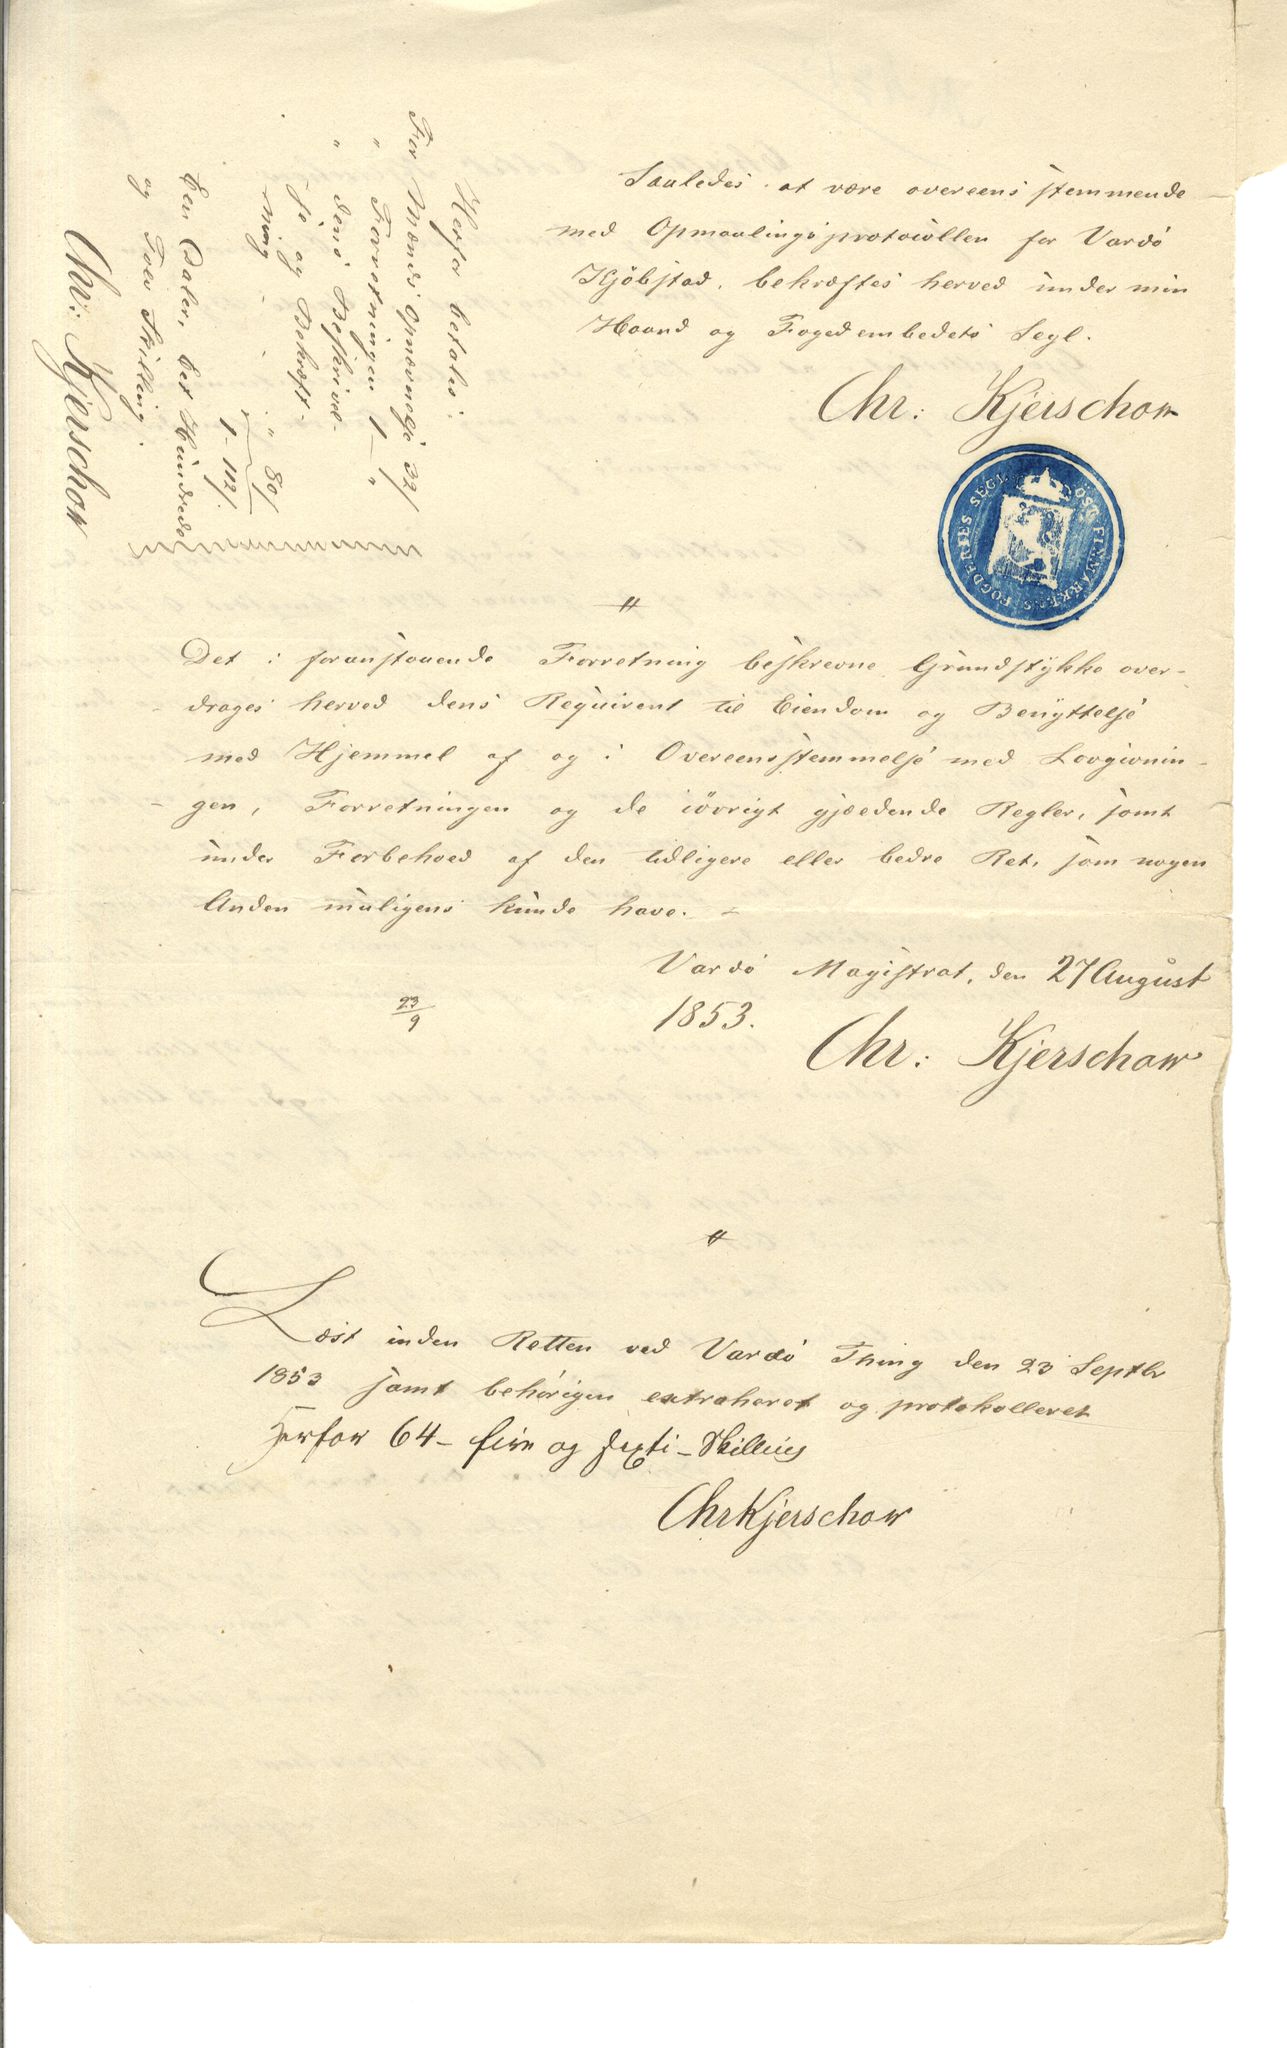 Saaledes at være overeensstemmende
med Opmaalingsprotocollen for Vardö
Kjöbstad, bekræftes herved under min
Haand og Fogedembedets Segl.
Chr: Kjerschow
ÖST FINMARKENS FOGDERIES SEGL
Herfor betales:
For Mænds Opnævnelse 32/
" Forretningen 1 - "
" dens Beskrivel-
se og Bekræft-
ning - - " 80/
1- 112/.
Een Daler, het Hundrede
og Tolv Skilling.
Chr: Kjerschow
Det i foranstaaende Forretning beskrevne Grundstykke over-
drages herved dens Reqvirent til Eiendom og Benyttelse
med Hjemmel af og i Overeensstemmelse med Lovgivnin-
gen, Forretningen og de iövrigt gjældende Regler, samt
under Forbehold af den tidligere eller bedre Ret, som nogen
Anden muligens kunde have.
Vardö Magistrat, den 27 August
1853.
23/9
Chr: Kjerschow
Læst inden Retten ved Vardö Thing den 23 Septbr
1853 samt behörigen extraheret og protokolleret
Herfor 64 - fire og sexti - Skilling
Chr Kjerschow